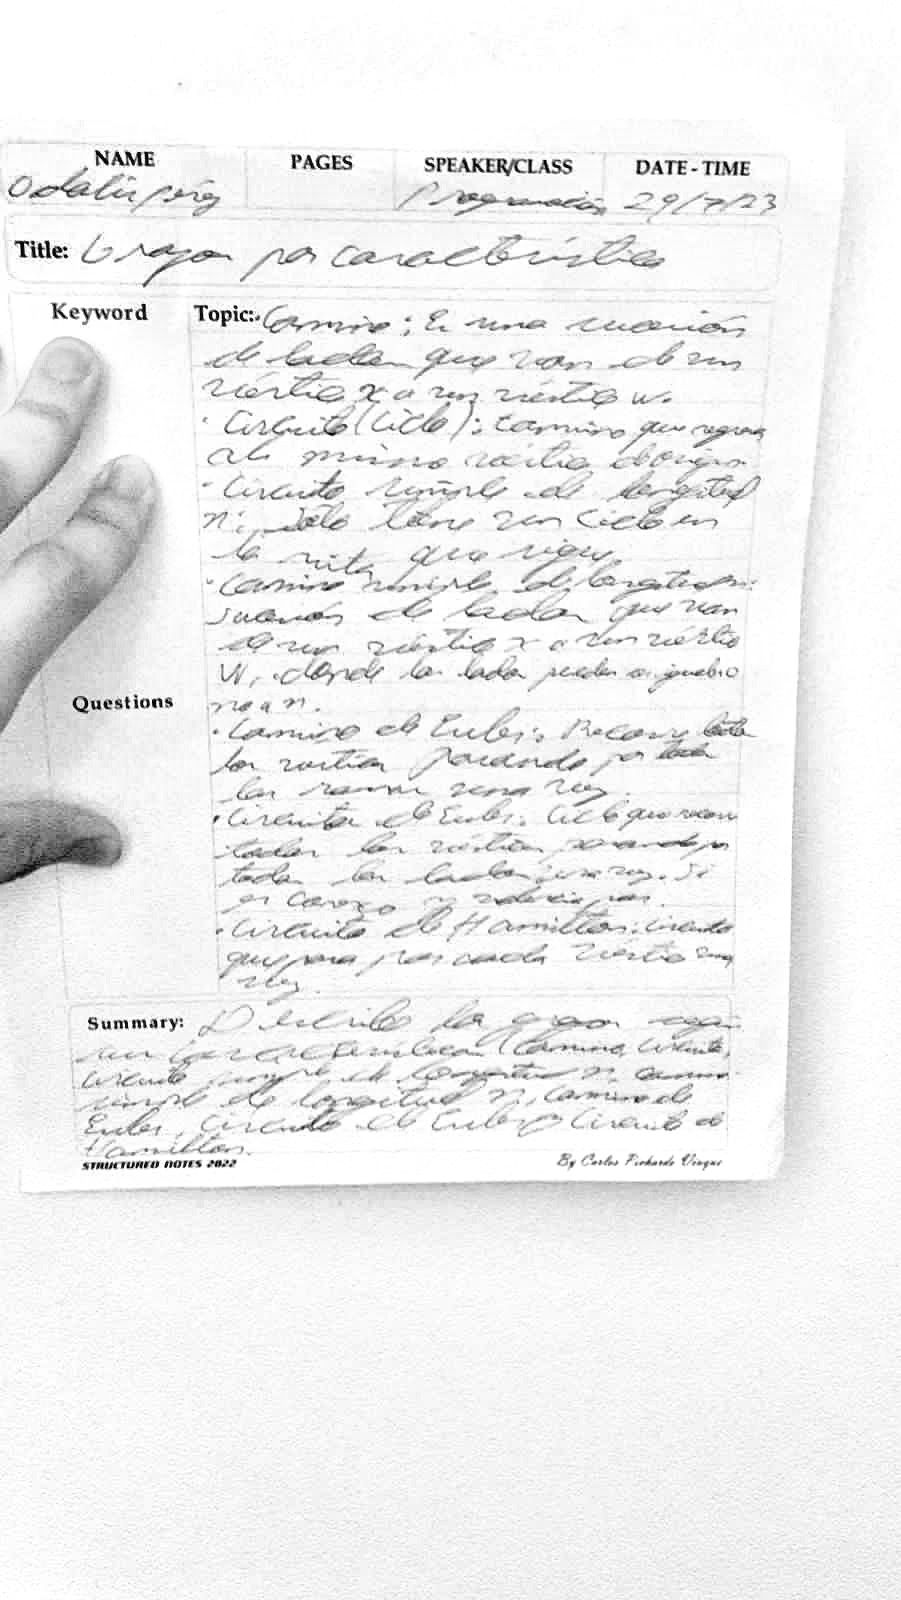 NAME PAGES SPEAKER/CLASS DATE - TIME
Odalis 29/7/23
Title: por característica
Keyword
Topic: Camino: Es una sucesión
de lados que van de un
vértice x a un vértice w.
· Circuito (Ciclo): Camino que regresa
al mismo vértice
· Circuito simple de longitud
n: Sólo tiene un ciclo en
la ruta que sigue
· Camino simple de longitud n:
Sucesión de lados que van
de un vértice x a un vértice
W, donde los lados
no a n.
Questions
· Camino de Euler:
los pasando por todos
los una vez.
· Circuito de Euler: Ciclo que
todos los vértices pasando
todos los lados una vez. Si
es
· Circuito de Hamilton: Circuito
que pasa por cada vértice una
vez.
Summary: Describe los
sus características (Camino, Circuito,
Circuito simple de longitud n, camino
simple de longitud n, Camino de
Euler, Circuito de Euler y Circuito de
Hamilton.
STRUCTURED NOTES 2022 By Carlos Pichardo Vinque